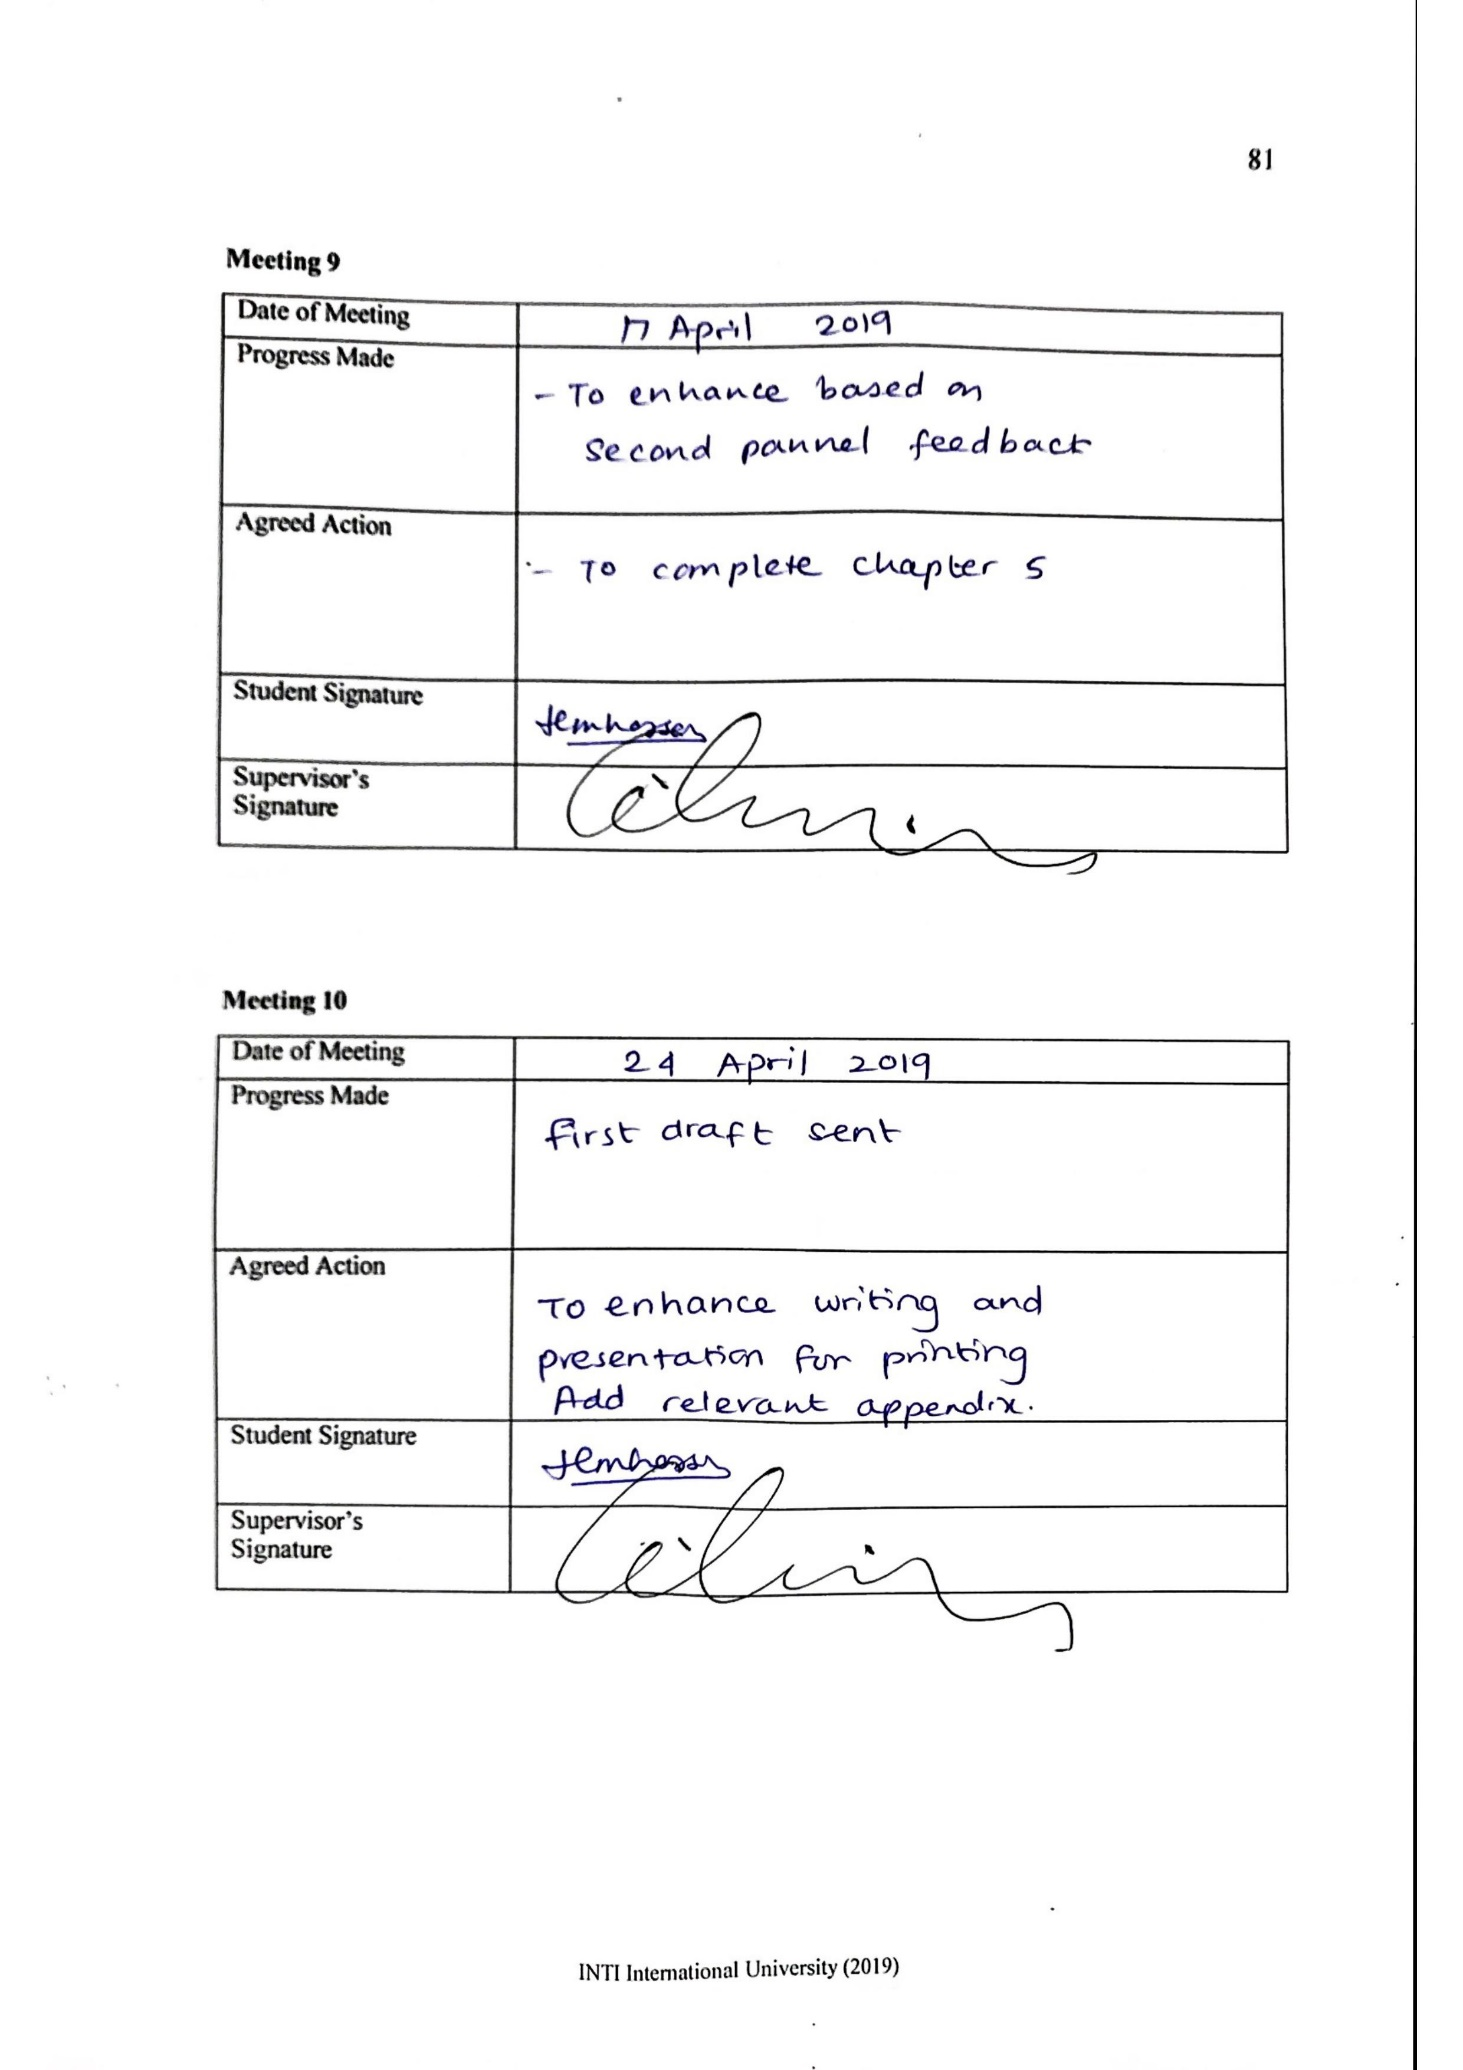 81
Meeting 9
Date of Meeting
17 April 2019
Progress Made
- To enhance based on
second pannel feedback
Agreed Action
- To complete chapter 5
Student Signature
Supervisor's
Signature
Meeting 10
Date of Meeting
24 April 2019
Progress Made
first draft sent
Agreed Action
To enhance writing and
presentation for printing
Add relevant appendix.
Student Signature
Supervisor's
Signature
INTI International University (2019)